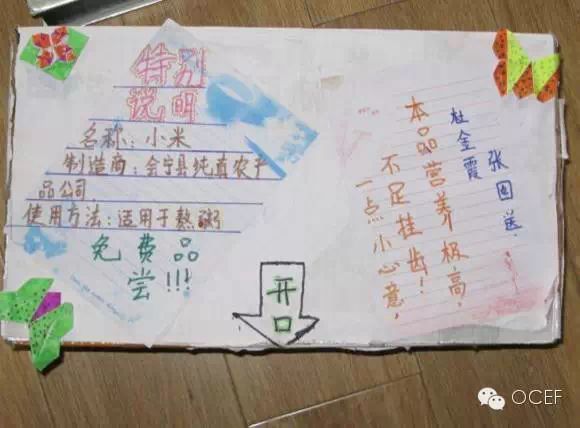 特别
说明
名称：小米
制造商：会宁县纯真农产
品公司
使用方法：适用于熬粥
免费品
尝!!!
开
口
本品营养极高，
不足挂齿！
一点小心意，
杜金霞
张国送
OCEF